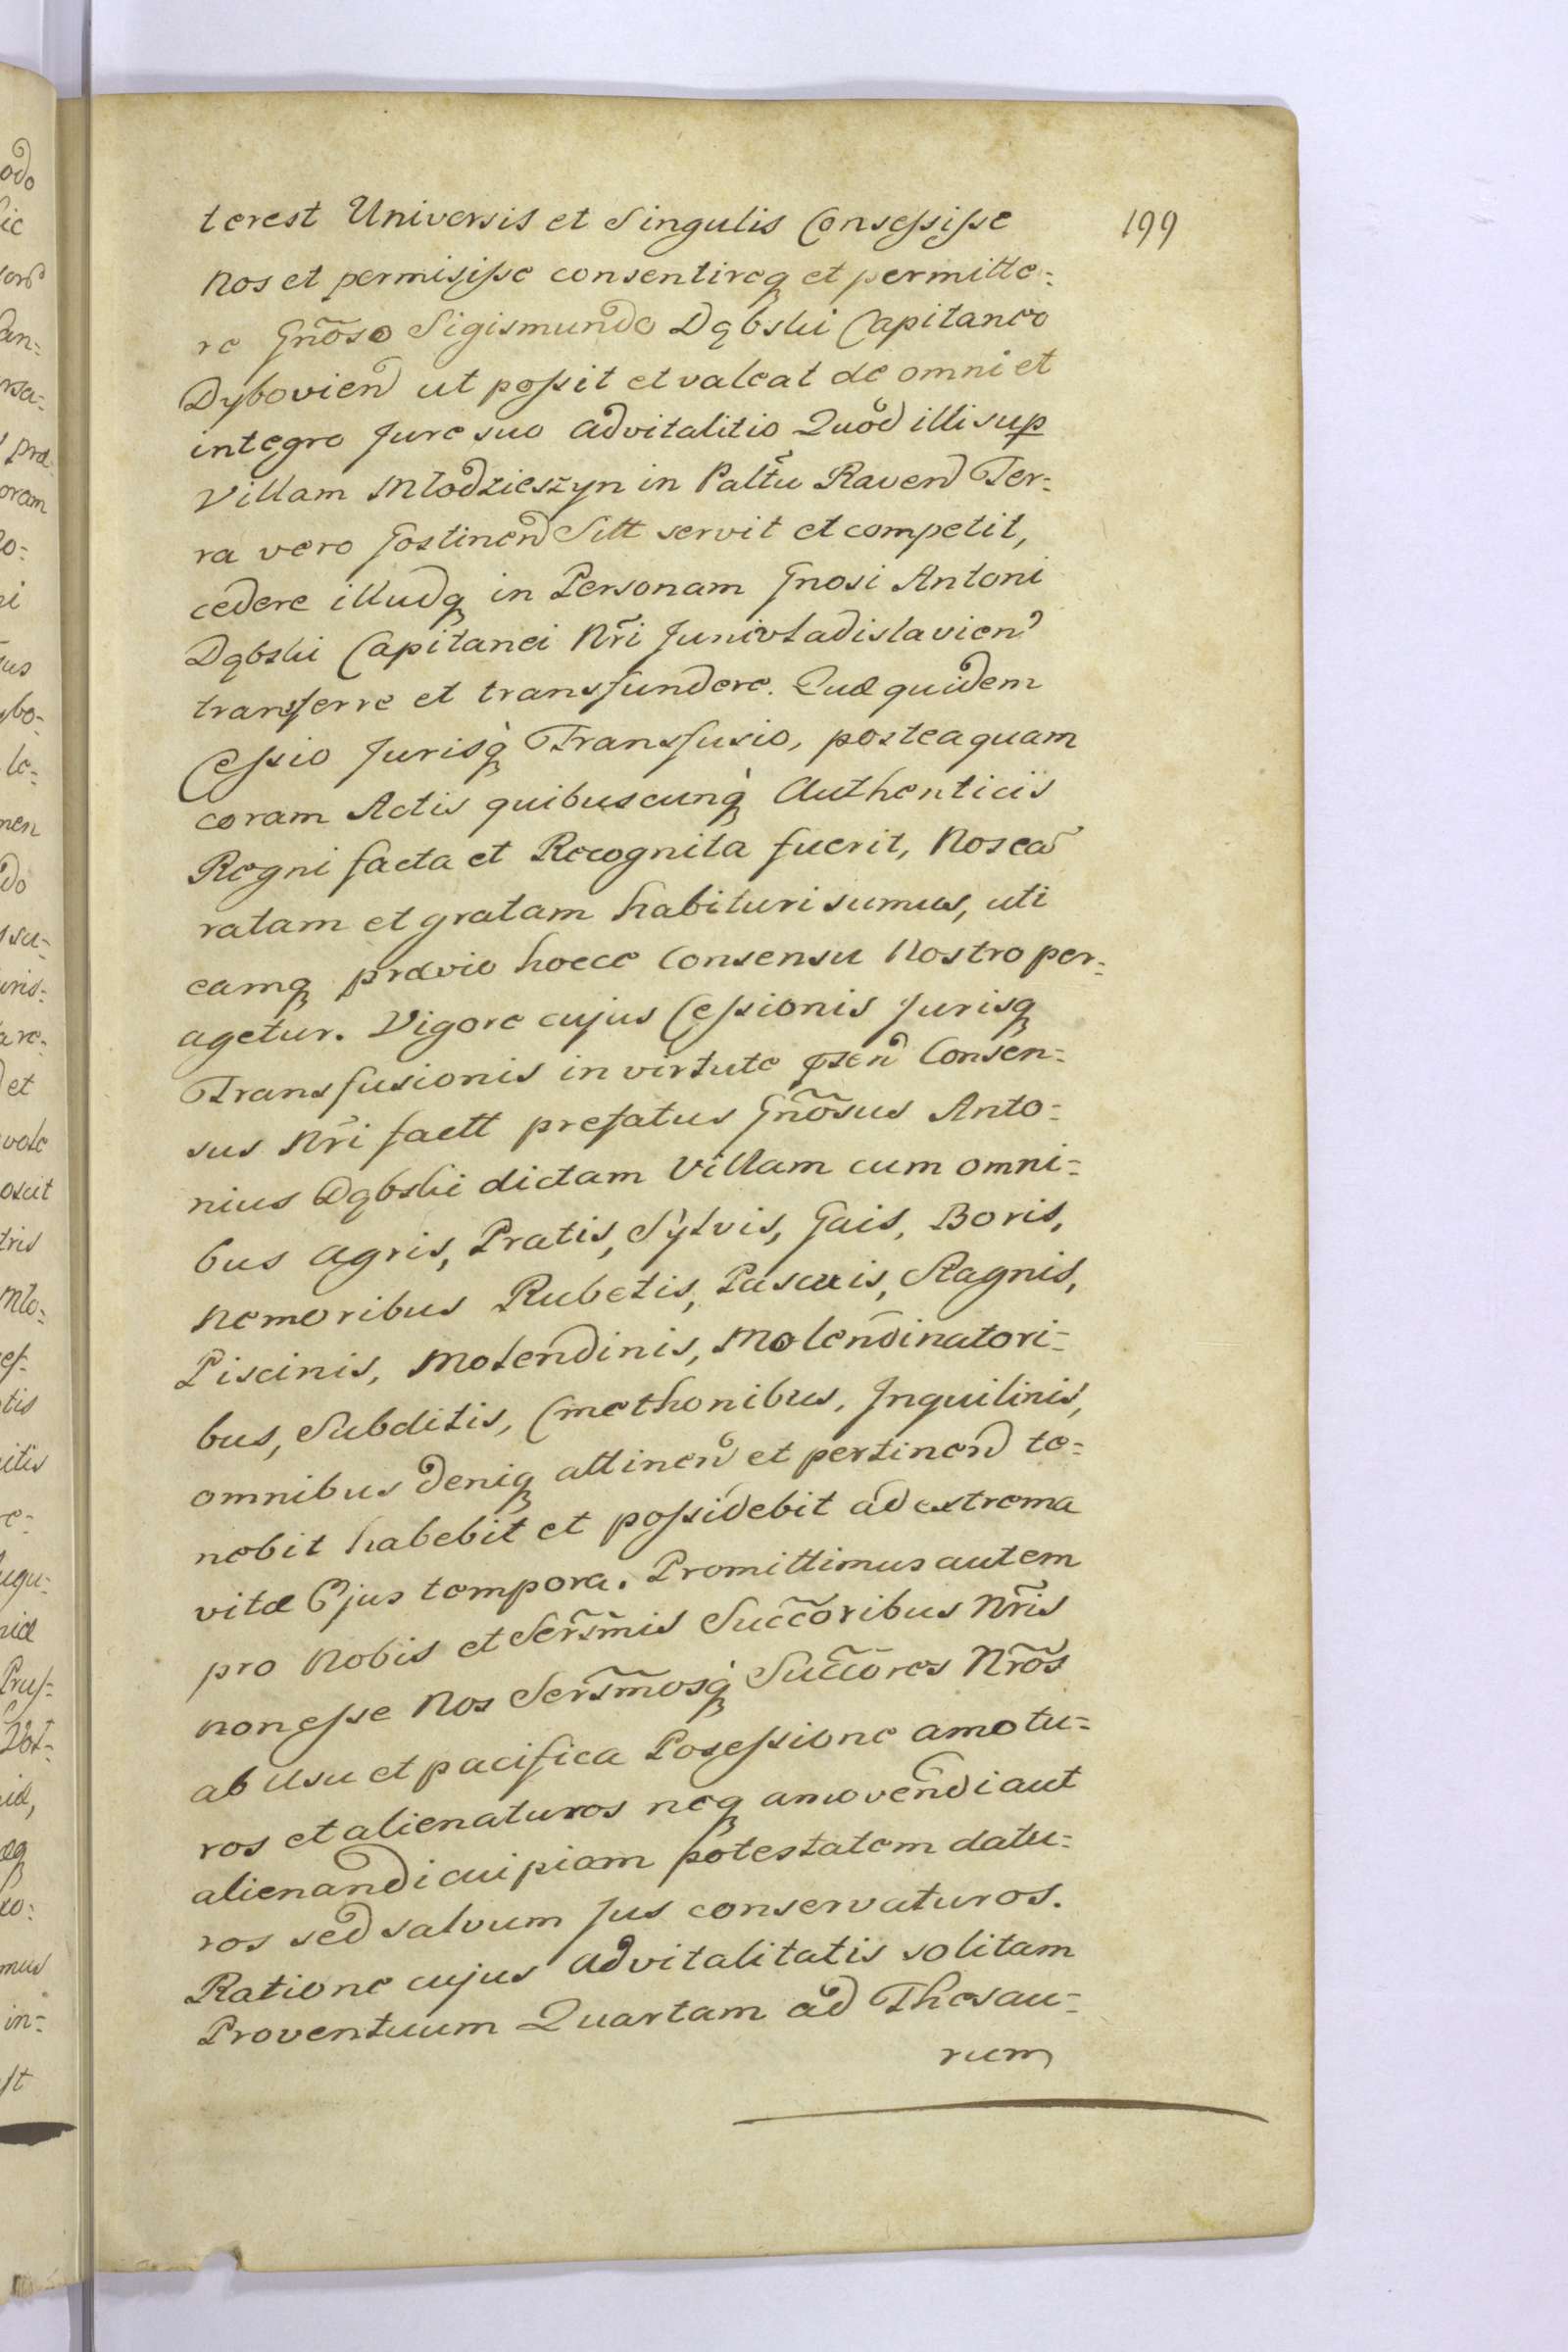 terest Universis et Singulis Consessisse
199
Nos et permisisse consentireq et permitte=
re Gnōso Sigismundo Dąbski Capitaneo
Dyboviend ut possit et valeat de omni et
integro Jure suo advitalitio Quod illi sup
Villam Młodzieszyn in Palttu Ravend Ter=
ra vero Gostinend Sitt servit et competit,
cedere illudq in Personam Gnosi Antoni
Dąbski Capitanei Nri Junivladislavien
transferre et transfundere. Quæ quidem
Cessio Jurisq Transfusio, posteaquam
coram Actis quibuscunq Authenticis
Regni facta et Recognita fuerit, Nos ea
ratam et gratam habituri sumus, uti
eamq prævio hocce Consensu Nostro per=
agetur. Vigore cujus Cessionis Jurisq
Transfusionis in virtute psen Consen=
sus Nri factt prefatus Gnōsus Anto=
nius Dąbski dictam Villam cum omni=
bus agris, Pratis, Sylvis, Gais, Boris,
Nemoribus Rubetis, Pascuis, Stagnis,
Piscinis, Molendinis, Molendinatori=
bus, Subditis, Cmethonibus, Inquilinis,
omnibus deniq attinen et pertinend te=
nebit habebit et possidebit ad extrema
vitæ Ejus tempora. Promittimus autem
pro Nobis et Serm̃is Succ̃oribus Nr̃is
non esse Nos Serm̃osq Succ̃ores Nr̃os
ab Usu et pacifica Posessione amotu=
ros et alienaturos neq amovendi aut
alienandi cuipiam potestatem datu=
ros sed salvum Jus conservaturos.
Ratione cujus advitalitatis solitam
Proventuum Quartam ad Thesau=
rum